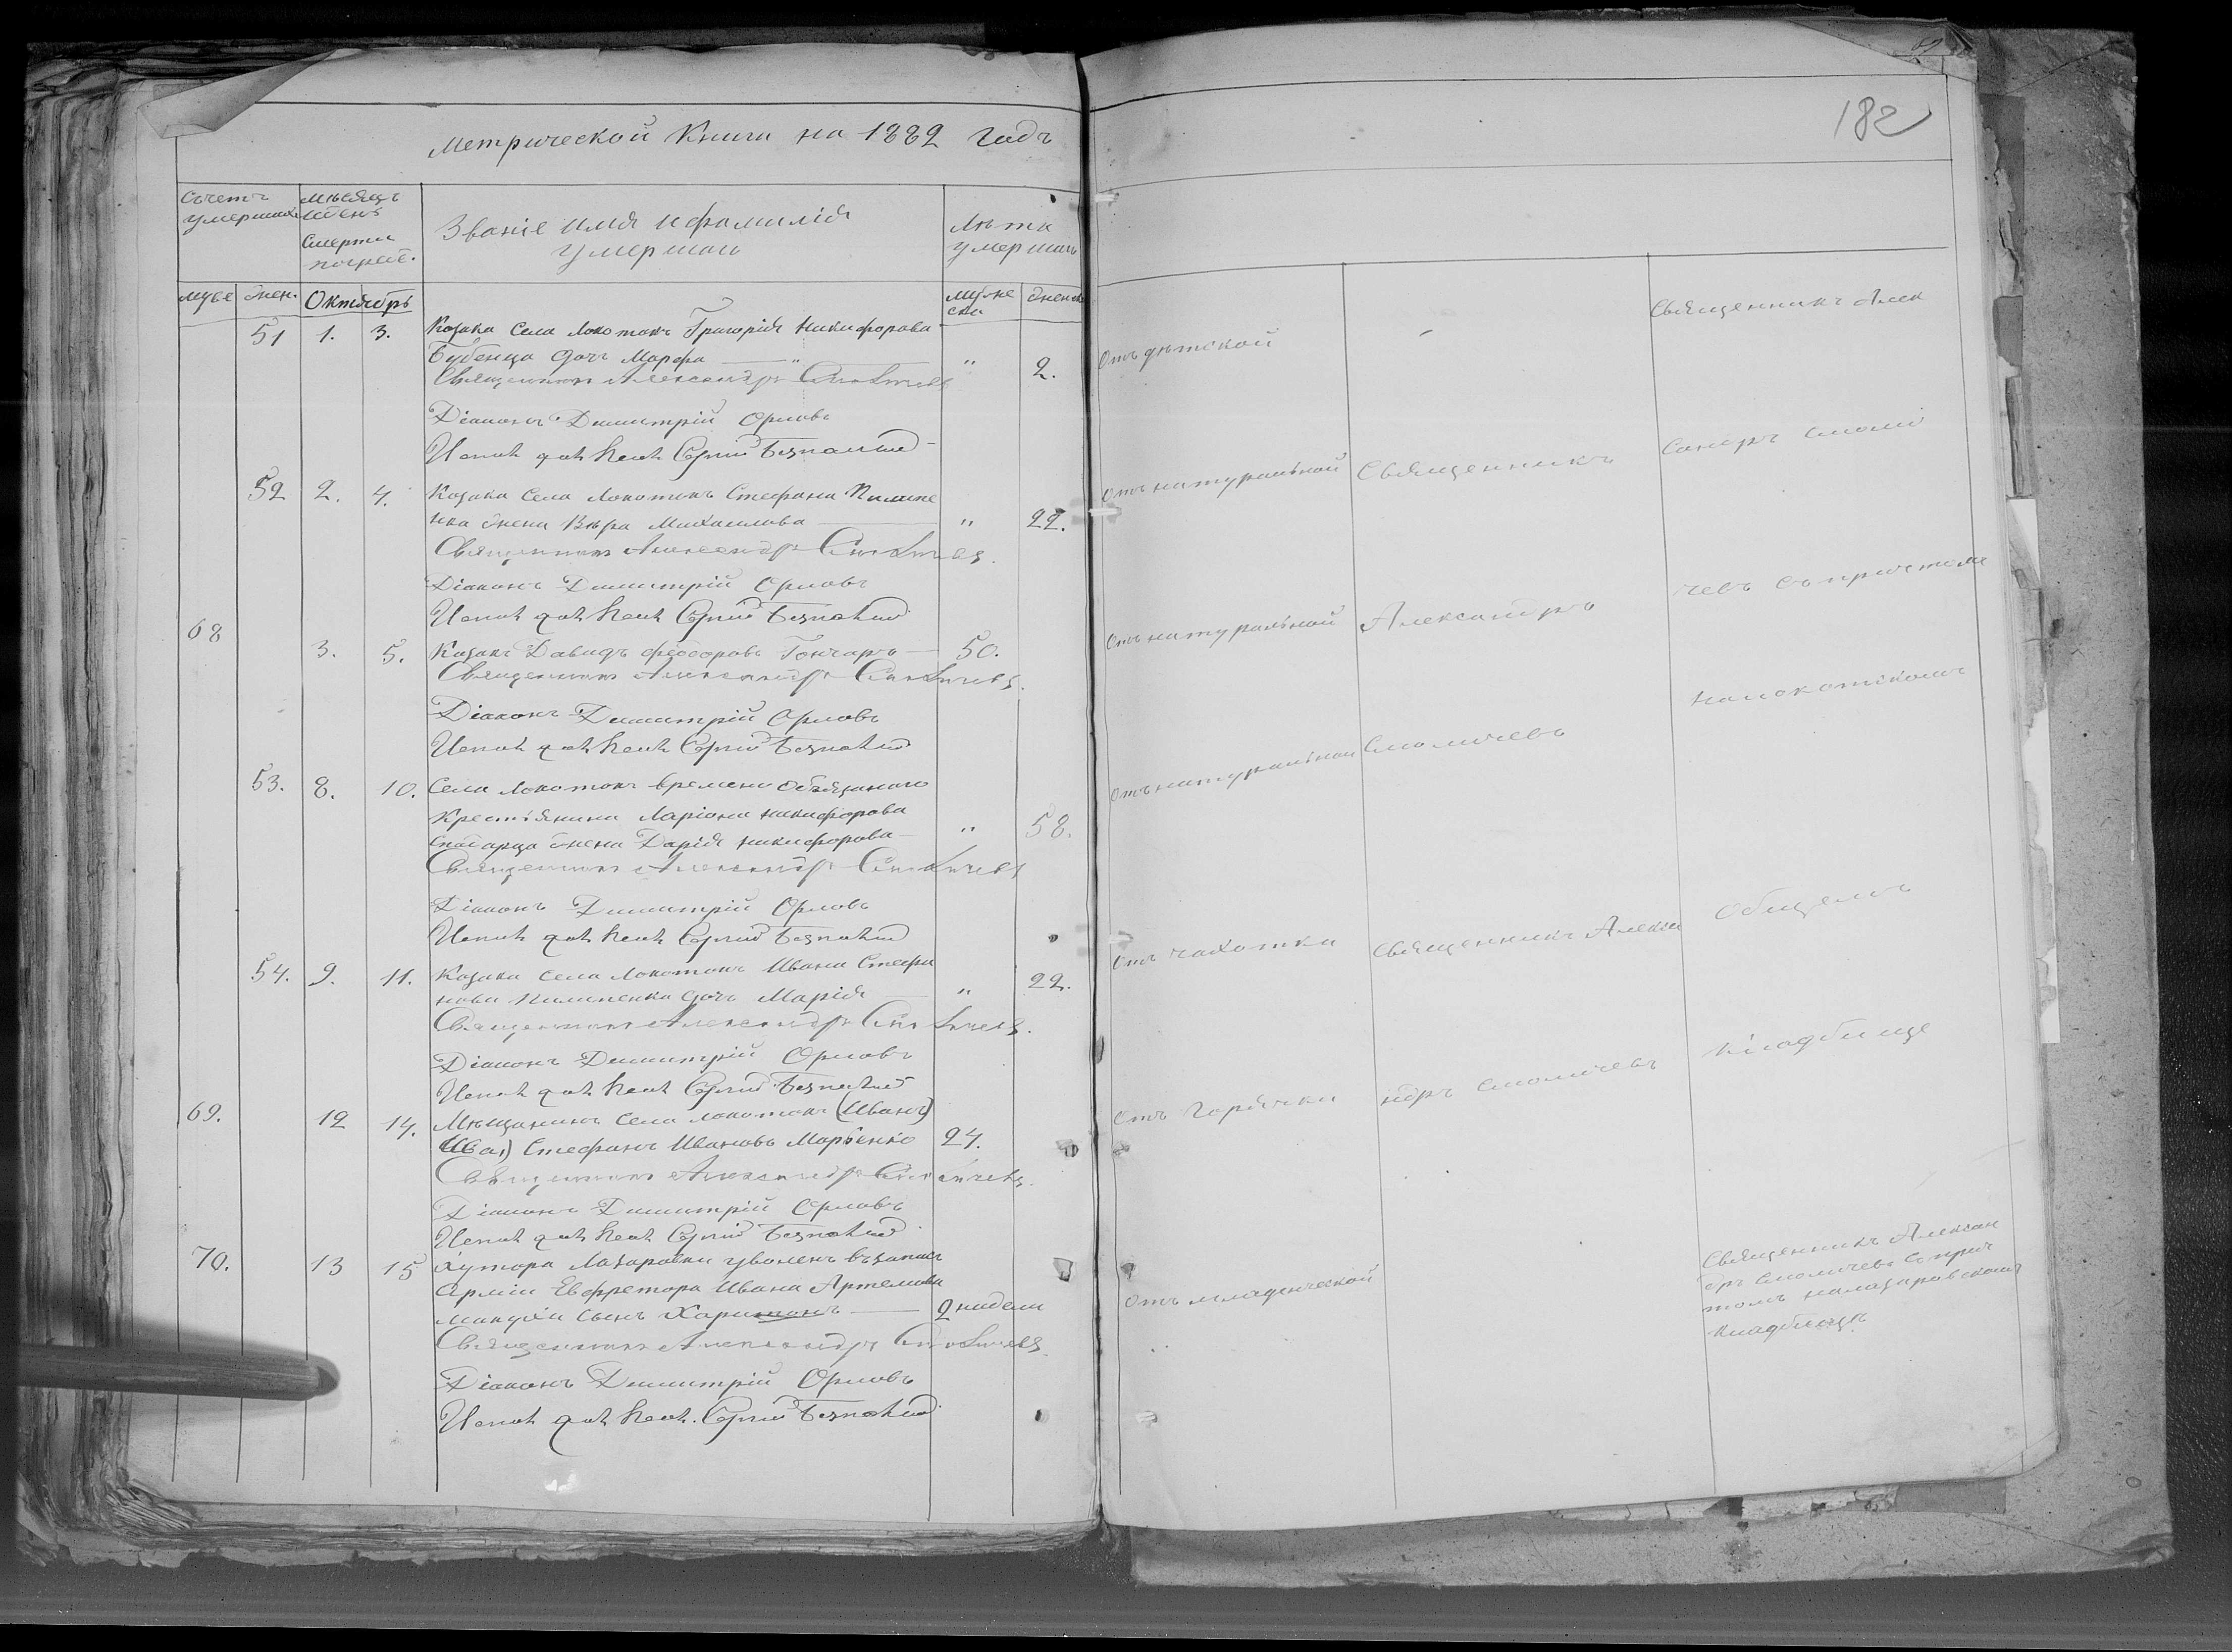 182
Метрической Книги на 1882 годъ
Счетъ умершихъ
Мѣсяцъ и день
Смерти погреб.
Званіе имя и фамилія
умершаго
Лѣта
умершаго
муже женс.
Октябрь
Муже
ска
женска
51 1. 3. Козака Села Локотокъ Григорія Никифорова
Бубенца дочь Марфа — " — " 2.
Священникъ Александръ Смоличевъ
Діаконъ Димитрій Орловъ
Сергій
52 2. 4. Козака Села Локотокъ Стефана Пилипе
нка жена Вѣра Михаилова — " 22.
Священникъ Александръ Смоличевъ.
Діаконъ Димитрій Орловъ
Сергій
68 3. 5. Козакъ Давидъ Феодоровъ Гончаръ — 50.
Священникъ Александръ Смоличевъ.
Діаконъ Димитрій Орловъ
Сергій
53. 8. 10. Села Локотокъ временно обязанного
Крестьянина Ларіона Никифорова
жена Дарія Никифорова — " 58.
Священникъ Александръ Смоличевъ
Діаконъ Димитрій Орловъ
Сергій
54. 9. 11. Козака Села Локотокъ Ивана Стефа
нова Пилипенка дочь Марія — " 22.
Священникъ Александръ Смоличевъ.
Діаконъ Димитрій Орловъ
Сергій
69. 12 14. Мѣщанинъ Села Локотокъ (Иванъ)
(Ива) Стефанъ Ивановъ Марченко 24.
Священникъ Александръ Смоличевъ.
Діаконъ Димитрій Орловъ
Сергій
70. 13 15 Хутора Лазаровки уволенъ въ запасъ
Арміи Ефретора Ивана Артемова
сынъ Харитонъ — 2 недели
Священникъ Александръ Смоличевъ.
Діаконъ Димитрій Орловъ
Сергій
Отъ дѣтской
Отъ натуральной
Отъ натуральной
Отъ натуральной
Отъ чахотки
Отъ Горячки
Отъ младенческой
Священникъ
Александръ
Смоличевъ
Священникъ Алекса
ндръ Смоличевъ
Священникъ Алек
сандръ Смоли
чевъ съ причтомъ
на локотскомъ
Общемъ
Кладбище
Священникъ Алексан
дръ Смоличевъ съ прич
томъ на лазаровскомъ
Кладбищѣ